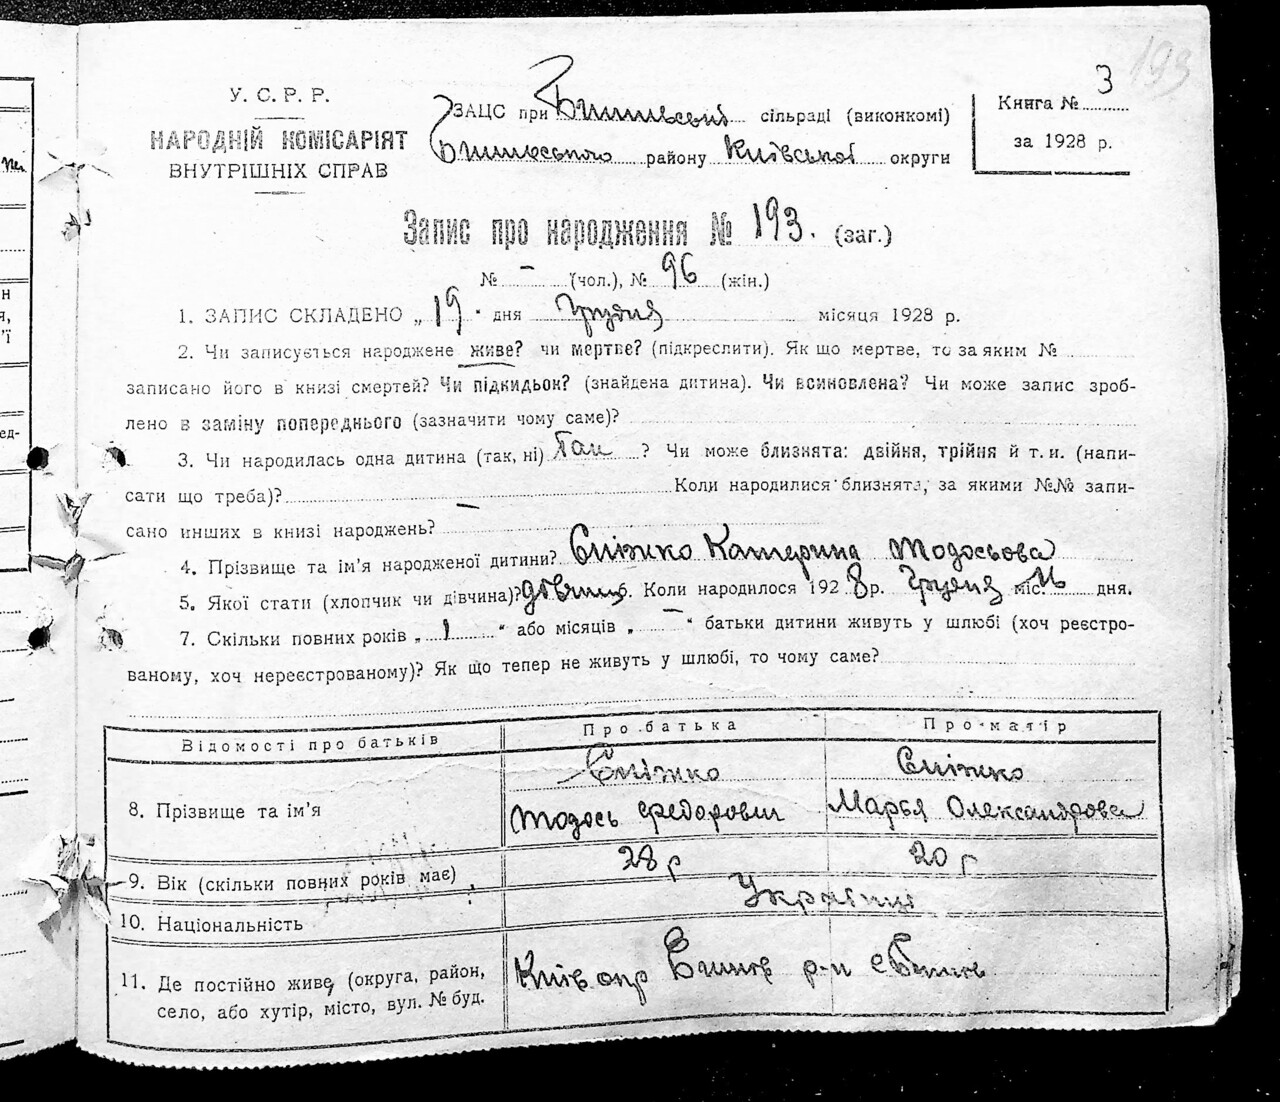 193
У. С. Р. Р.
НАРОДНІЙ КОМІСАРІЯТ
ВНУТРІШНІХ СПРАВ
ЗАЦС при Бишівській сільраді (виконкомі)
Бишівського району Київської округи
Книга № 3
за 1928 р.
Запис про народження № 193. (заг.)
№ – (чол.), № 96 (жін.)
1. ЗАПИС СКЛАДЕНО „ 19 " дня Грудня місяця 1928 р.
2. Чи записується народжене живе? чи мертве? (підкреслити). Як що мертве, то за яким №
записано його в книзі смертей? Чи підкидьок? (знайдена дитина). Чи всиновлена? Чи може запис зроб-
лено в заміну попереднього (зазначити чому саме)?
3. Чи народилась одна дитина (так, ні) Так ? Чи може близнята: двійня, трійня й т. и. (напи-
сати що треба)? Коли народилися близнята, за якими №№ запи-
сано инших в книзі народжень? –
4. Прізвище та ім'я народженої дитини? Сніжко Катерина Тодосьова
5. Якої статі (хлопчик чи дівчина)? 6. Коли народилося 1928 р. Грудня міс. дня.
7. Скільки повних років „ 1 " або місяців „ – " батьки дитини живуть у шлюбі (хоч реєстро-
ваному, хоч нереєстрованому)? Як що тепер не живуть у шлюбі, то чому саме?
Відомості про батьків Про батька Про матір
8. Прізвище та ім'я Сніжко Тодось Федорович Сніжко Марья Олександрова
9. Вік (скільки повних років має) 28 р 20 р
10. Національність Українці
11. Де постійно живе, (округа, район, Київ окр Бишів р-н с Бишів
село, або хутір, місто, вул. № буд.